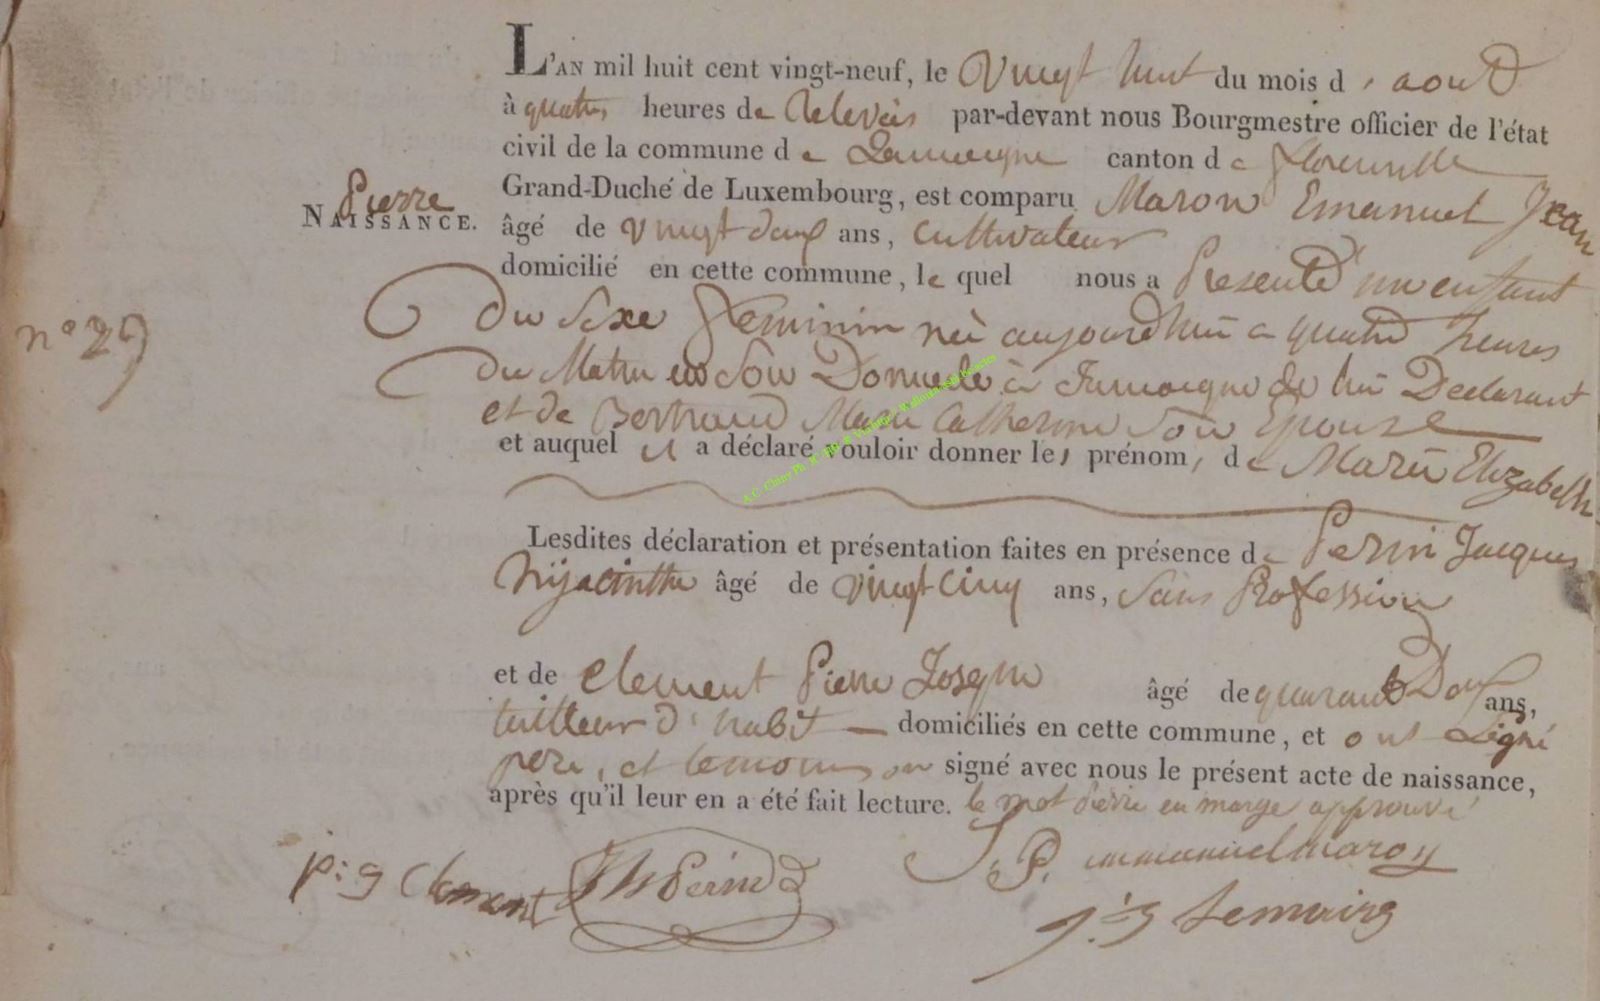 L'AN mil huit cent vingt-neuf, le Vingt huit du mois d'aout
à quatre heures de Relevée par-devant nous Bourgmestre officier de l'état
civil de la commune de Jamoigne canton de florenville
Grand-Duché de Luxembourg, est comparu Maron Emanuel Jean
Pierre
NAISSANCE.
âgé de vingt deux ans, Cultivateur
domicilié en cette commune, le quel nous a Presenté un enfant
n° 29
Du Sexe Feminin né aujourdhui a quatre heures
Du Matin en Son Domicile à Jamoigne de lui Declarant
et de Bertrand Marie Catherine Son Epouse
et auquel il a déclaré vouloir donner les prénoms de Marie Elizabeth
A.C. Chiny Ph.
Lesdites déclaration et présentation faites en présence de Perin Jacques
hijacinthe âgé de vingt cinq ans, Sans Profession
et de Clement Pierre Joseph âgé de quarante Deux ans,
tailleur d'habit domiciliés en cette commune, et ont Signé
pere, et temoins on signé avec nous le présent acte de naissance,
après qu'il leur en a été fait lecture. le mot Pierre en marge approuvé
p: j Clement Perin J. P. immanuel maron
j: j Lemaire